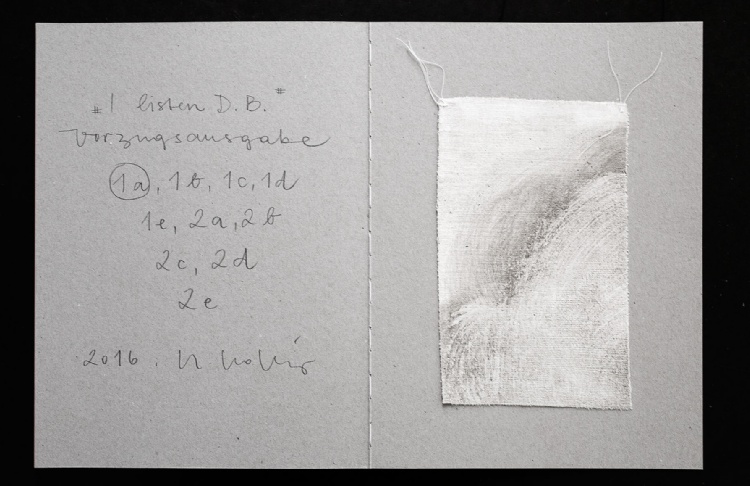 "I listen D.B."
Vorzugsausgabe
1a, 1b, 1c, 1d
1e, 2a, 2b
2c, 2d
2e
2016.